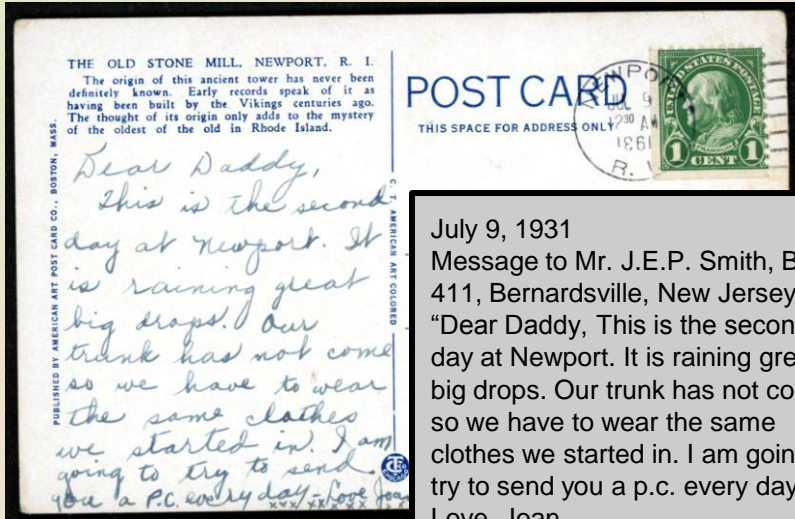 THE OLD STONE MILL, NEWPORT, R. I.
The origin of this ancient tower has never been
definitely known. Early records speak of it as
having been built by the Vikings centuries ago.
The thought of its origin only adds to the mystery
of the oldest of the old in Rhode Island.
PUBLISHED BY AMERICAN ART POST CARD CO., BOSTON, MASS.
Dear Daddy,
This is the second
day at Newport. It
is raining great
big drops. Our
trunk has not come
so we have to wear
the same clothes
we started in. I am
going to try to send
you a P.C. every day - Love Joan
xxx xx xx xx
C. T. AMERICAN ART COLORED
POST CARD
THIS SPACE FOR ADDRESS ONLY
NEWPORT
JUL 9
12 30 AM
R.
UNITED STATES POSTAGE
1 CENT 1
July 9, 1931
Message to Mr. J.E.P. Smith, B
411, Bernardsville, New Jersey
“Dear Daddy, This is the secon
day at Newport. It is raining gre
big drops. Our trunk has not co
so we have to wear the same
clothes we started in. I am goin
try to send you a p.c. every day
Love, Joan